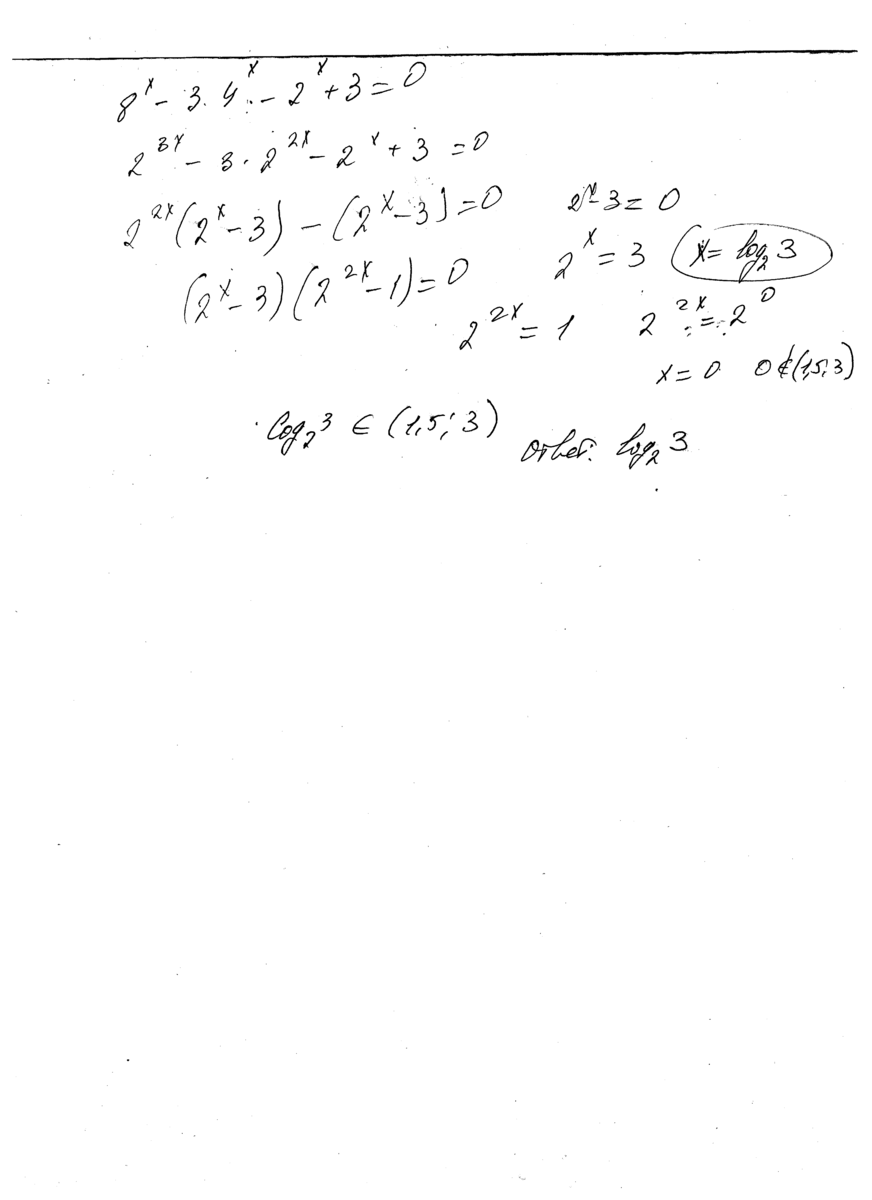 8^x - 3 · 4^x - 2^x + 3 = 0
2^{3x} - 3 · 2^{2x} - 2^x + 3 = 0
2^{2x}(2^x - 3) - (2^x - 3) = 0
(2^x - 3)(2^{2x} - 1) = 0
2^x - 3 = 0
2^x = 3 x = log_2 3
2^{2x} = 1 2^{2x} = 2^0
x = 0 0 ∉ (1,5; 3)
log_2 3 ∈ (1,5; 3)
Ответ: log_2 3